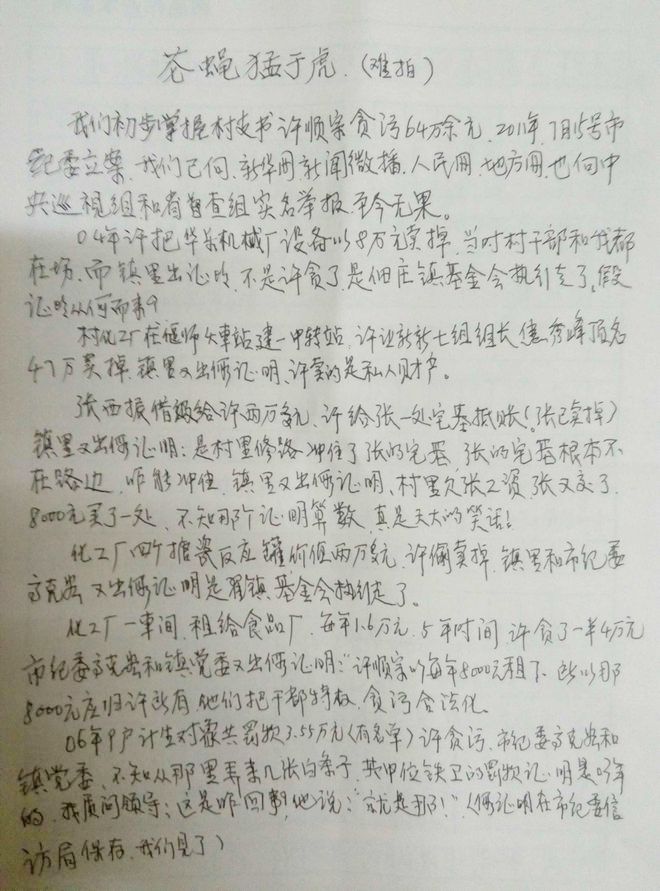 苍蝇猛于虎.(难拍)
我们初步掌握村支书许顺宗贪污64万余元,2011年7月15号市
纪委立案,我们已向,新华网新闻微播,人民网,地方网,也向中
央巡视组和省督查组实名举报至今无果。
04年许把华乐机械厂设备以8万元卖掉,当时村干部和我都
在场,而镇里出证明,不是许贪了,是佃庄镇基金会执行走了,假
证明从何而来?
村化工厂在偃师火车站建一中转站,许让新新七组组长秀峰顶名
47万卖掉,镇里又出假证明,许卖的是私人财产。
张西振借给许两万多元,许给张一处宅基抵账(张已卖掉)
镇里又出假证明:是村里修路冲住了张的宅基,张的宅基根本不
在路边,咋能冲住,镇里又出假证明,村里欠张工资,张又交了
8000元买了一处,不知那个证明算数,真是天大的笑话!
化工厂四个搪瓷反应罐价值两万多元,许偷卖掉,镇里和市纪委
高克岑又出假证明是镇基金会执行走了。
化工厂一车间,租给食品厂,每年1.6万元,5年时间许贪了一半4万元
市纪委高克岑和镇党委又出假证明:“许顺宗以每年8000元租下,所以那
8000元应归许所有,他们把干部特权,贪污合法化。
06年9户计生对象共罚款3.55万元(有名单)许贪污,市纪委高克岑和
镇党委,不知从那里弄来几张白条子,其中位铁卫的罚款证明是03年
的,我质问领导:这是咋回事,他说:“就是那!”(假证明在市纪委信
访局保存,我们见了)